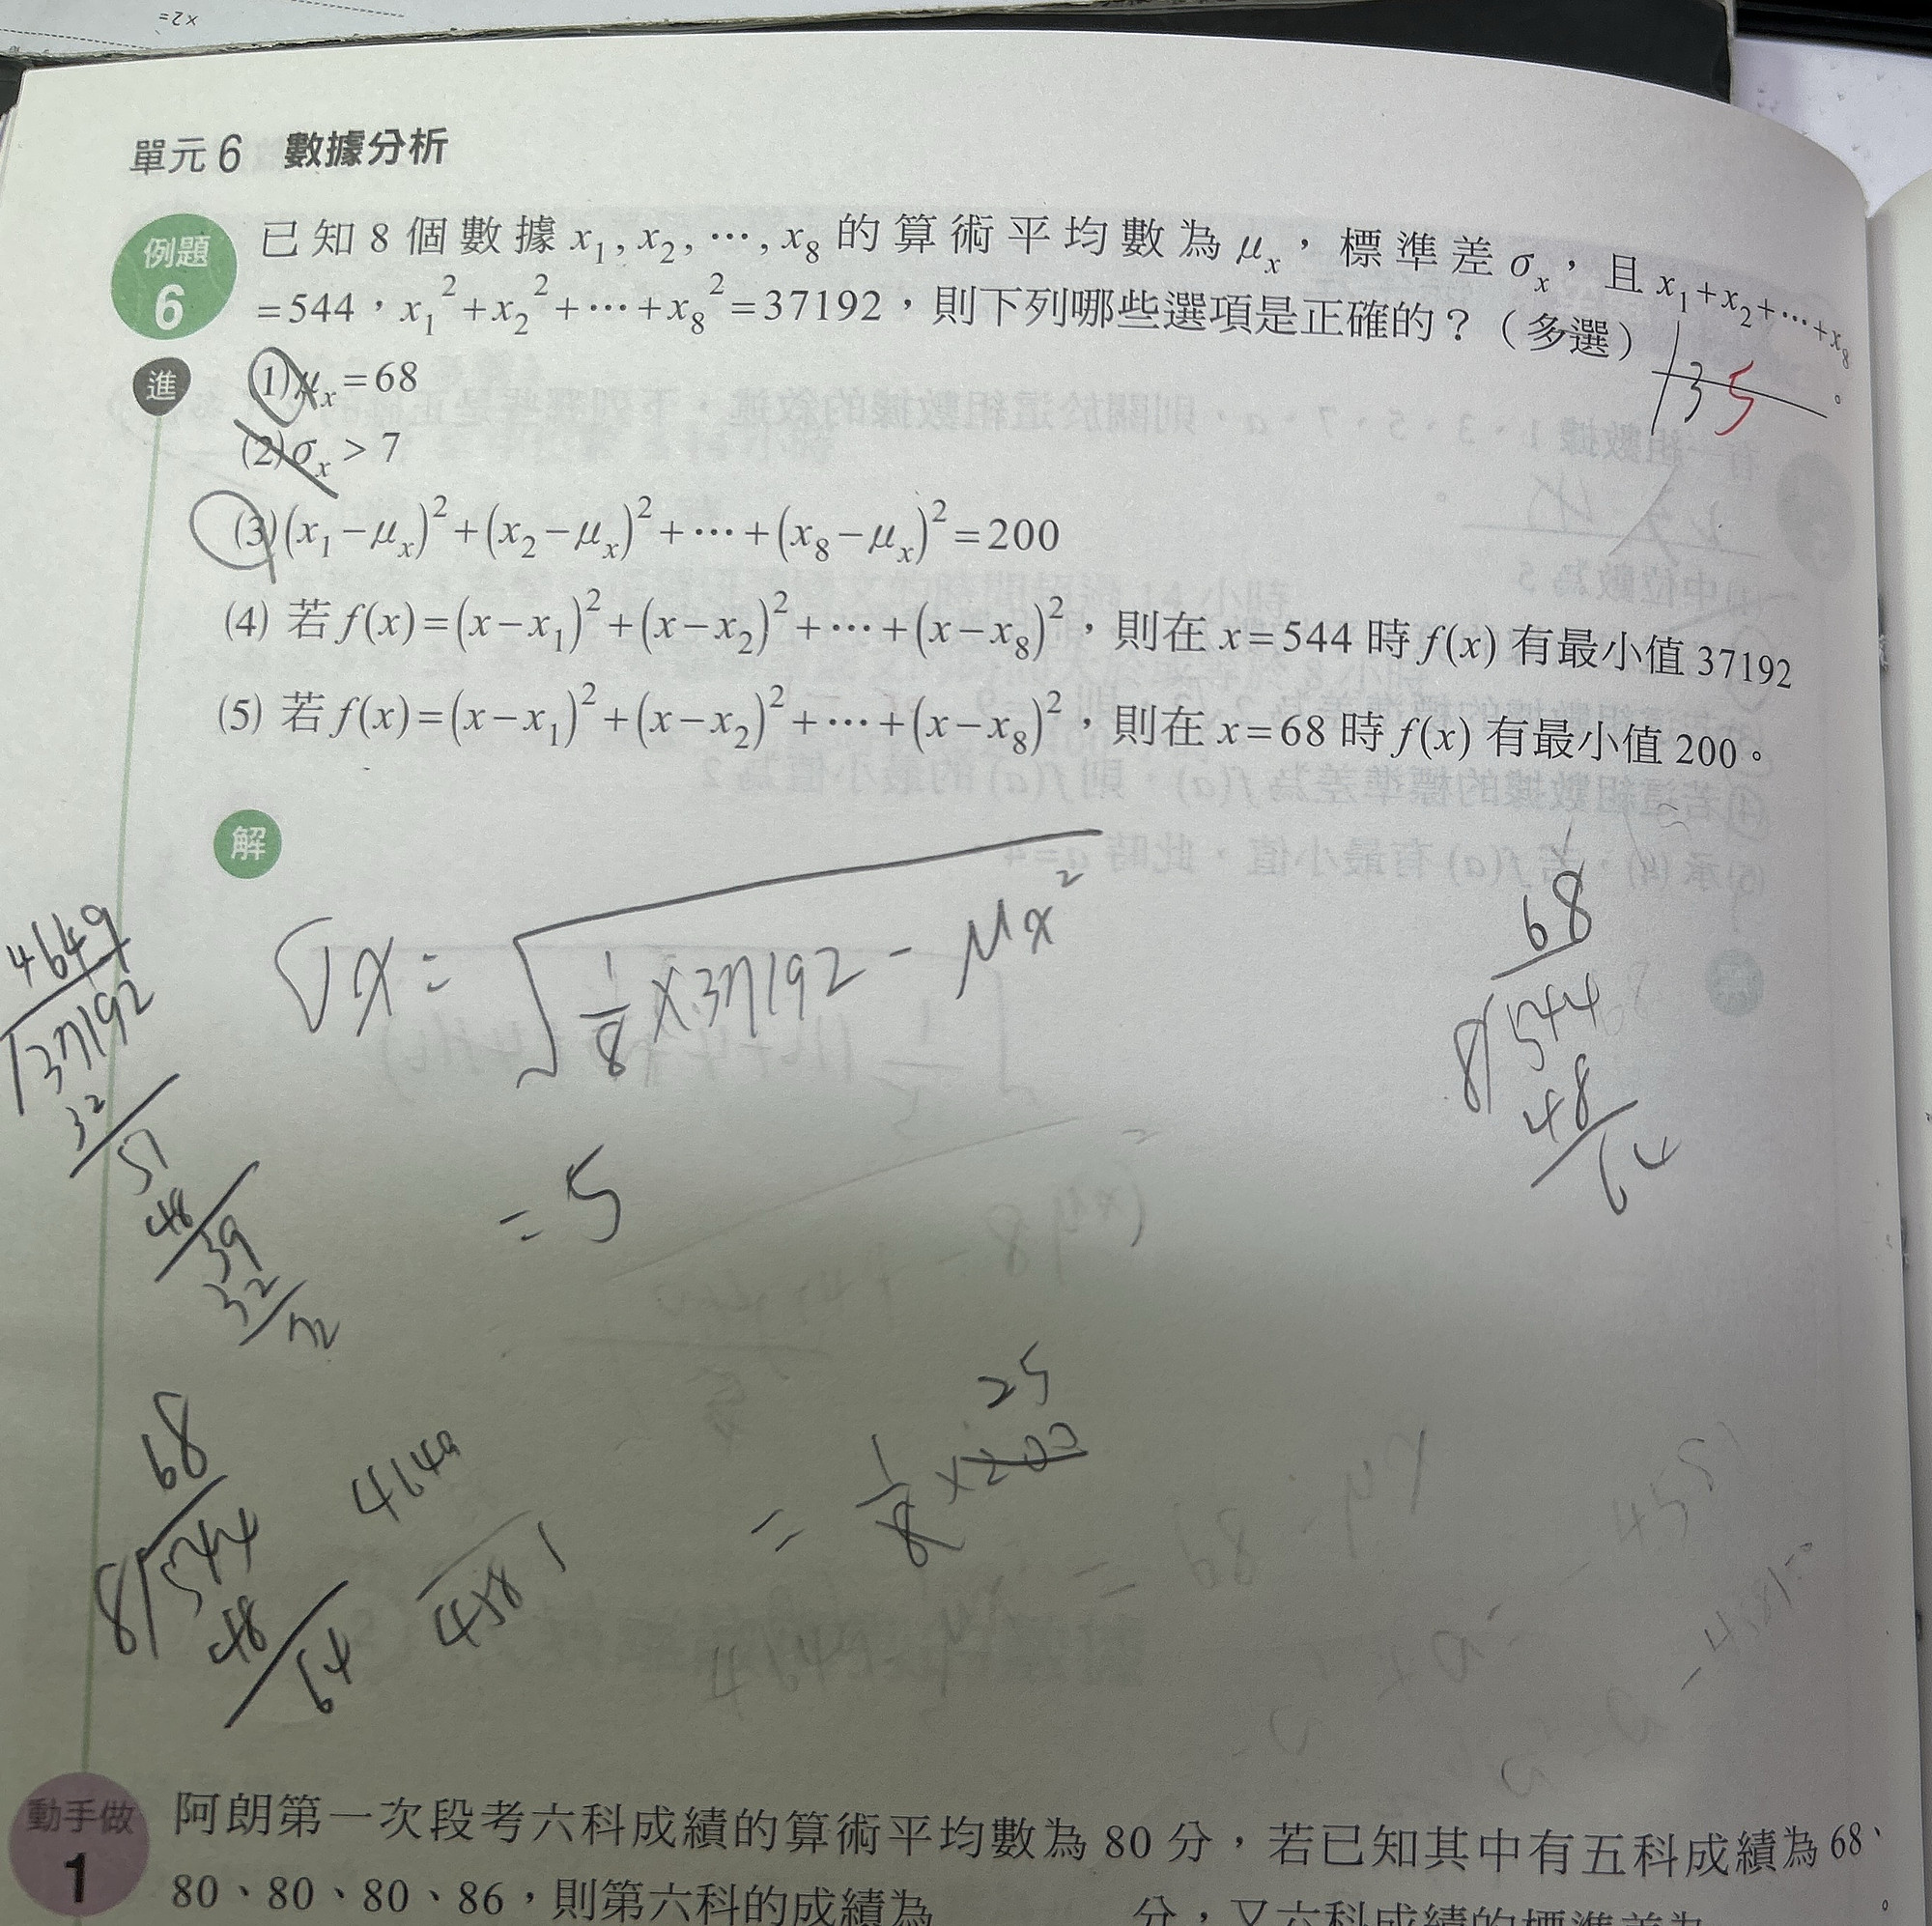 ×2=
單元6 數據分析
例題6
已知8個數據 x₁, x₂, ⋯, x₈ 的算術平均數為 μₓ，標準差 σₓ，且 x₁+x₂+⋯+x₈
=544，x₁²+x₂²+⋯+x₈²=37192，則下列哪些選項是正確的？（多選） 135 。
進
(1) μₓ=68
(2) σₓ>7
(3) (x₁−μₓ)²+(x₂−μₓ)²+⋯+(x₈−μₓ)²=200
(4) 若 f(x)=(x−x₁)²+(x−x₂)²+⋯+(x−x₈)²，則在 x=544 時 f(x) 有最小值 37192
(5) 若 f(x)=(x−x₁)²+(x−x₂)²+⋯+(x−x₈)²，則在 x=68 時 f(x) 有最小值 200。
解
σx = √(1/8 ×37192 − μx²)
= 5
4649
37192
32
51
48
39
32
72
68
8 544
48
64
68
8 544
48
64
4649
25
= 1/8 ×200
動手做1
阿朗第一次段考六科成績的算術平均數為 80 分，若已知其中有五科成績為 68、
80、80、80、86，則第六科的成績為 分，又六科成績的標準差為 。